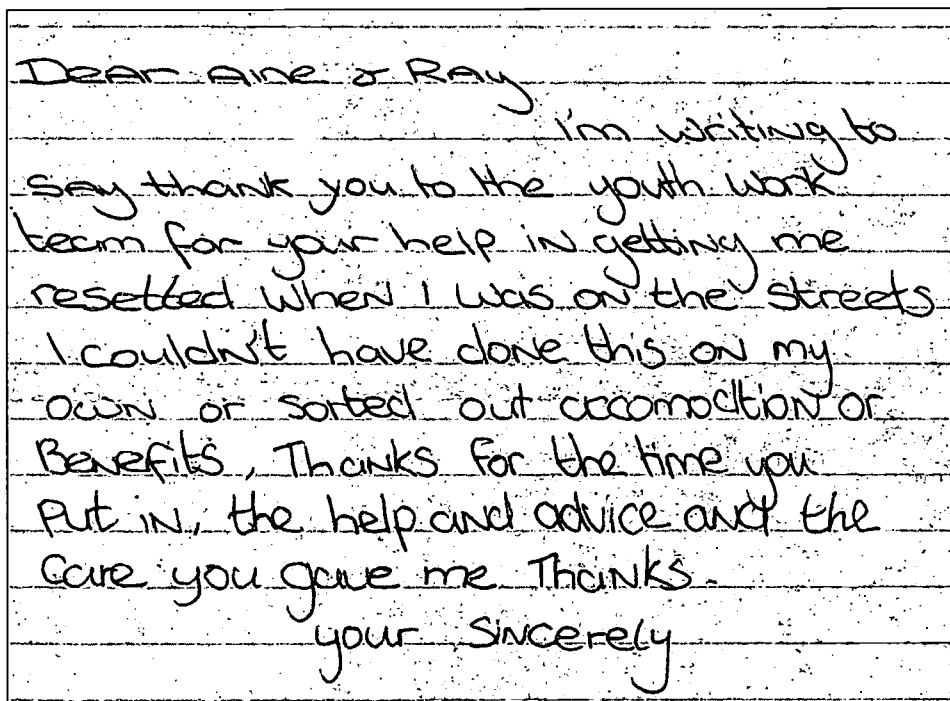 Dear Aine & Ray
I'm writing to
say thank you to the youth work
team for your help in getting me
resetted when I was on the streets
I couldn't have done this on my
own or sorted out accomodtion or
Benefits, Thanks for the time you
Put in, the help and advice and the
Care you gave me Thanks.
your Sincerely